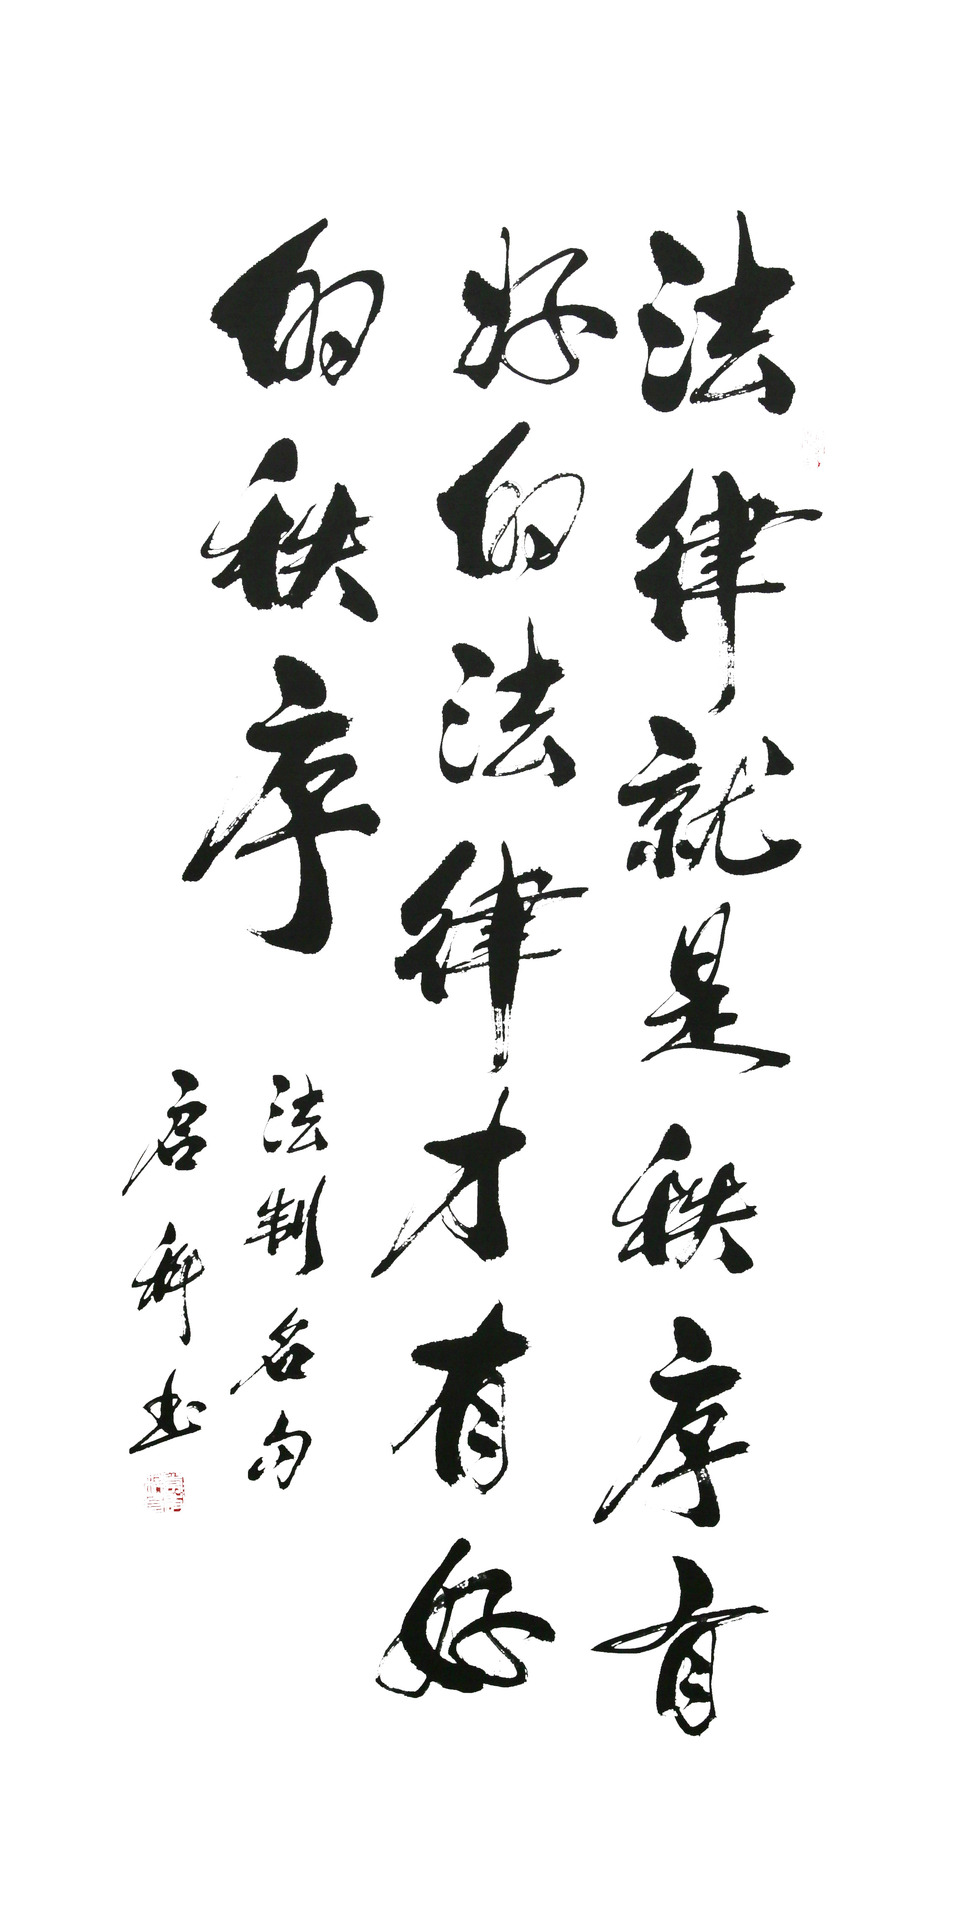 法律就是秩序有
好的法律才有好
的秩序
法制名句
启科书